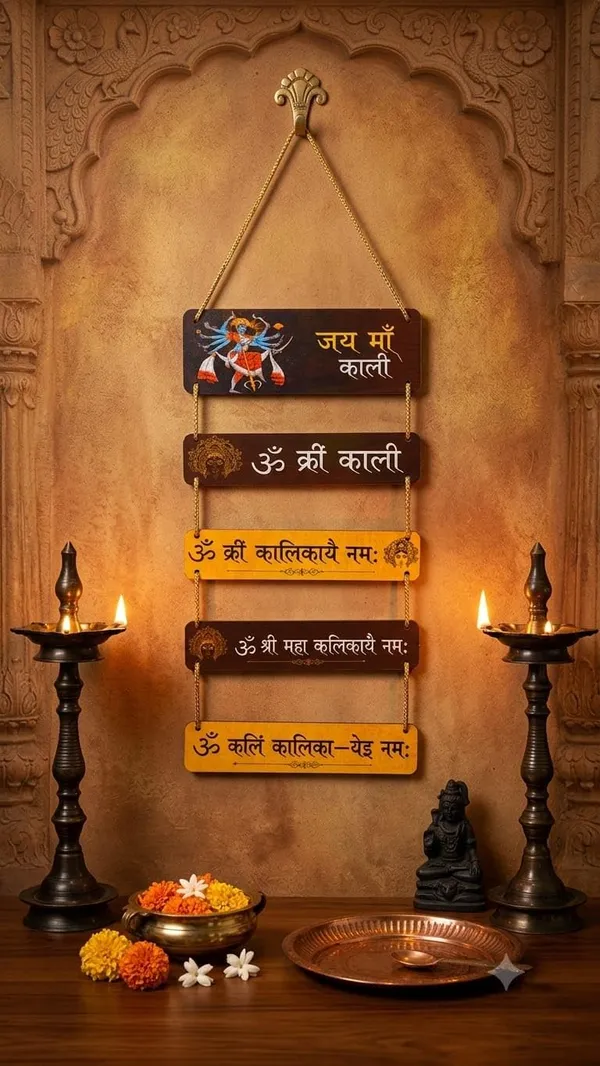 जय माँ
काली
ॐ क्रीं काली
ॐ क्रीं कालिकायै नमः
ॐ श्री महा कलिकायै नमः
ॐ कलिं कालिका–येइ नमः